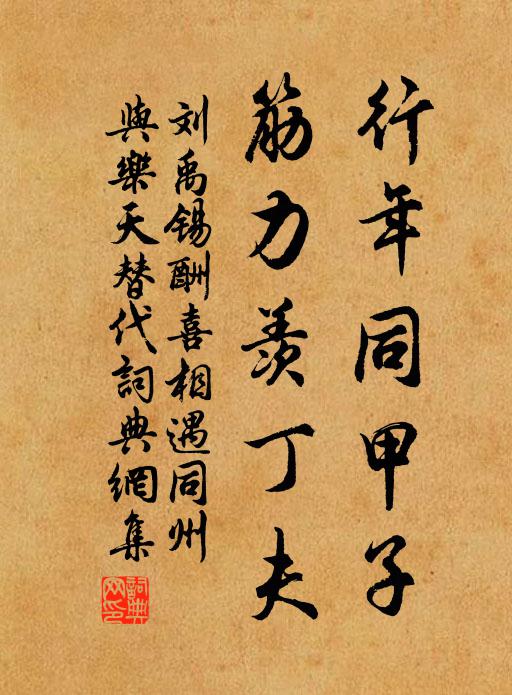 行年同甲子
筋力羡丁夫
刘禹锡酬喜相遇同州
與樂天替代詞典網集
詞典网印